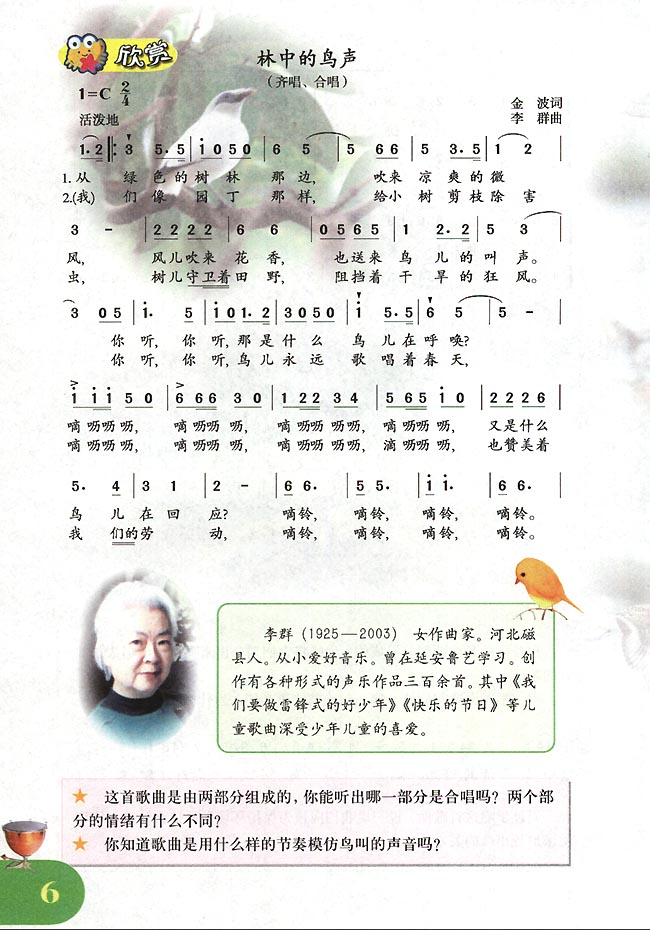 欣赏
林中的鸟声
（齐唱、合唱）
1=C 2/4
金 波词
活泼地
李 群曲
1·2 ‖: 3 5·5 | i 0 5 0 | 6 5 | 5 6 6 | 5 3·5 | 1 2 |
1.从 绿色的树林 那边， 吹来 凉爽的微
2.(我) 们像 园丁 那样， 给小 树剪枝除害
3 - | 2 2 2 2 | 6 6 | 0 5 6 5 | 1 2·2 | 5 3 |
风， 风儿吹来 花香， 也送来 鸟儿的叫声。
虫， 树儿守卫着田野， 阻挡着 干旱的狂风。
3 0 5 | i· 5 | i 0 1·2 | 3 0 5 0 | i 5·5 | 6 5 | 5 - |
你 听， 你 听，那是什么 鸟儿在呼唤？
你 听， 你 听，鸟儿永远 歌唱着春天，
i i i 5 0 | 6 6 6 3 0 | 1 2 2 3 4 | 5 6 5 i 0 | 2 2 2 6 |
嘀呖呖呖， 嘀呖呖呖， 嘀呖呖呖呖， 嘀呖呖呖， 又是什么
嘀呖呖呖， 嘀呖呖呖， 嘀呖呖呖呖， 滴呖呖呖， 也赞美着
5· 4 | 3 1 | 2 - | 6 6· | 5 5· | i i· | 6 6· |
鸟 儿在回 应？ 嘀铃， 嘀铃， 嘀铃， 嘀铃。
我 们的劳 动， 嘀铃， 嘀铃， 嘀铃， 嘀铃。
李群（1925—2003） 女作曲家。河北磁
县人。从小爱好音乐。曾在延安鲁艺学习。创
作有各种形式的声乐作品三百余首。其中《我
们要做雷锋式的好少年》《快乐的节日》等儿
童歌曲深受少年儿童的喜爱。
★ 这首歌曲是由两部分组成的，你能听出哪一部分是合唱吗？两个部
分的情绪有什么不同？
★ 你知道歌曲是用什么样的节奏模仿鸟叫的声音吗？
6